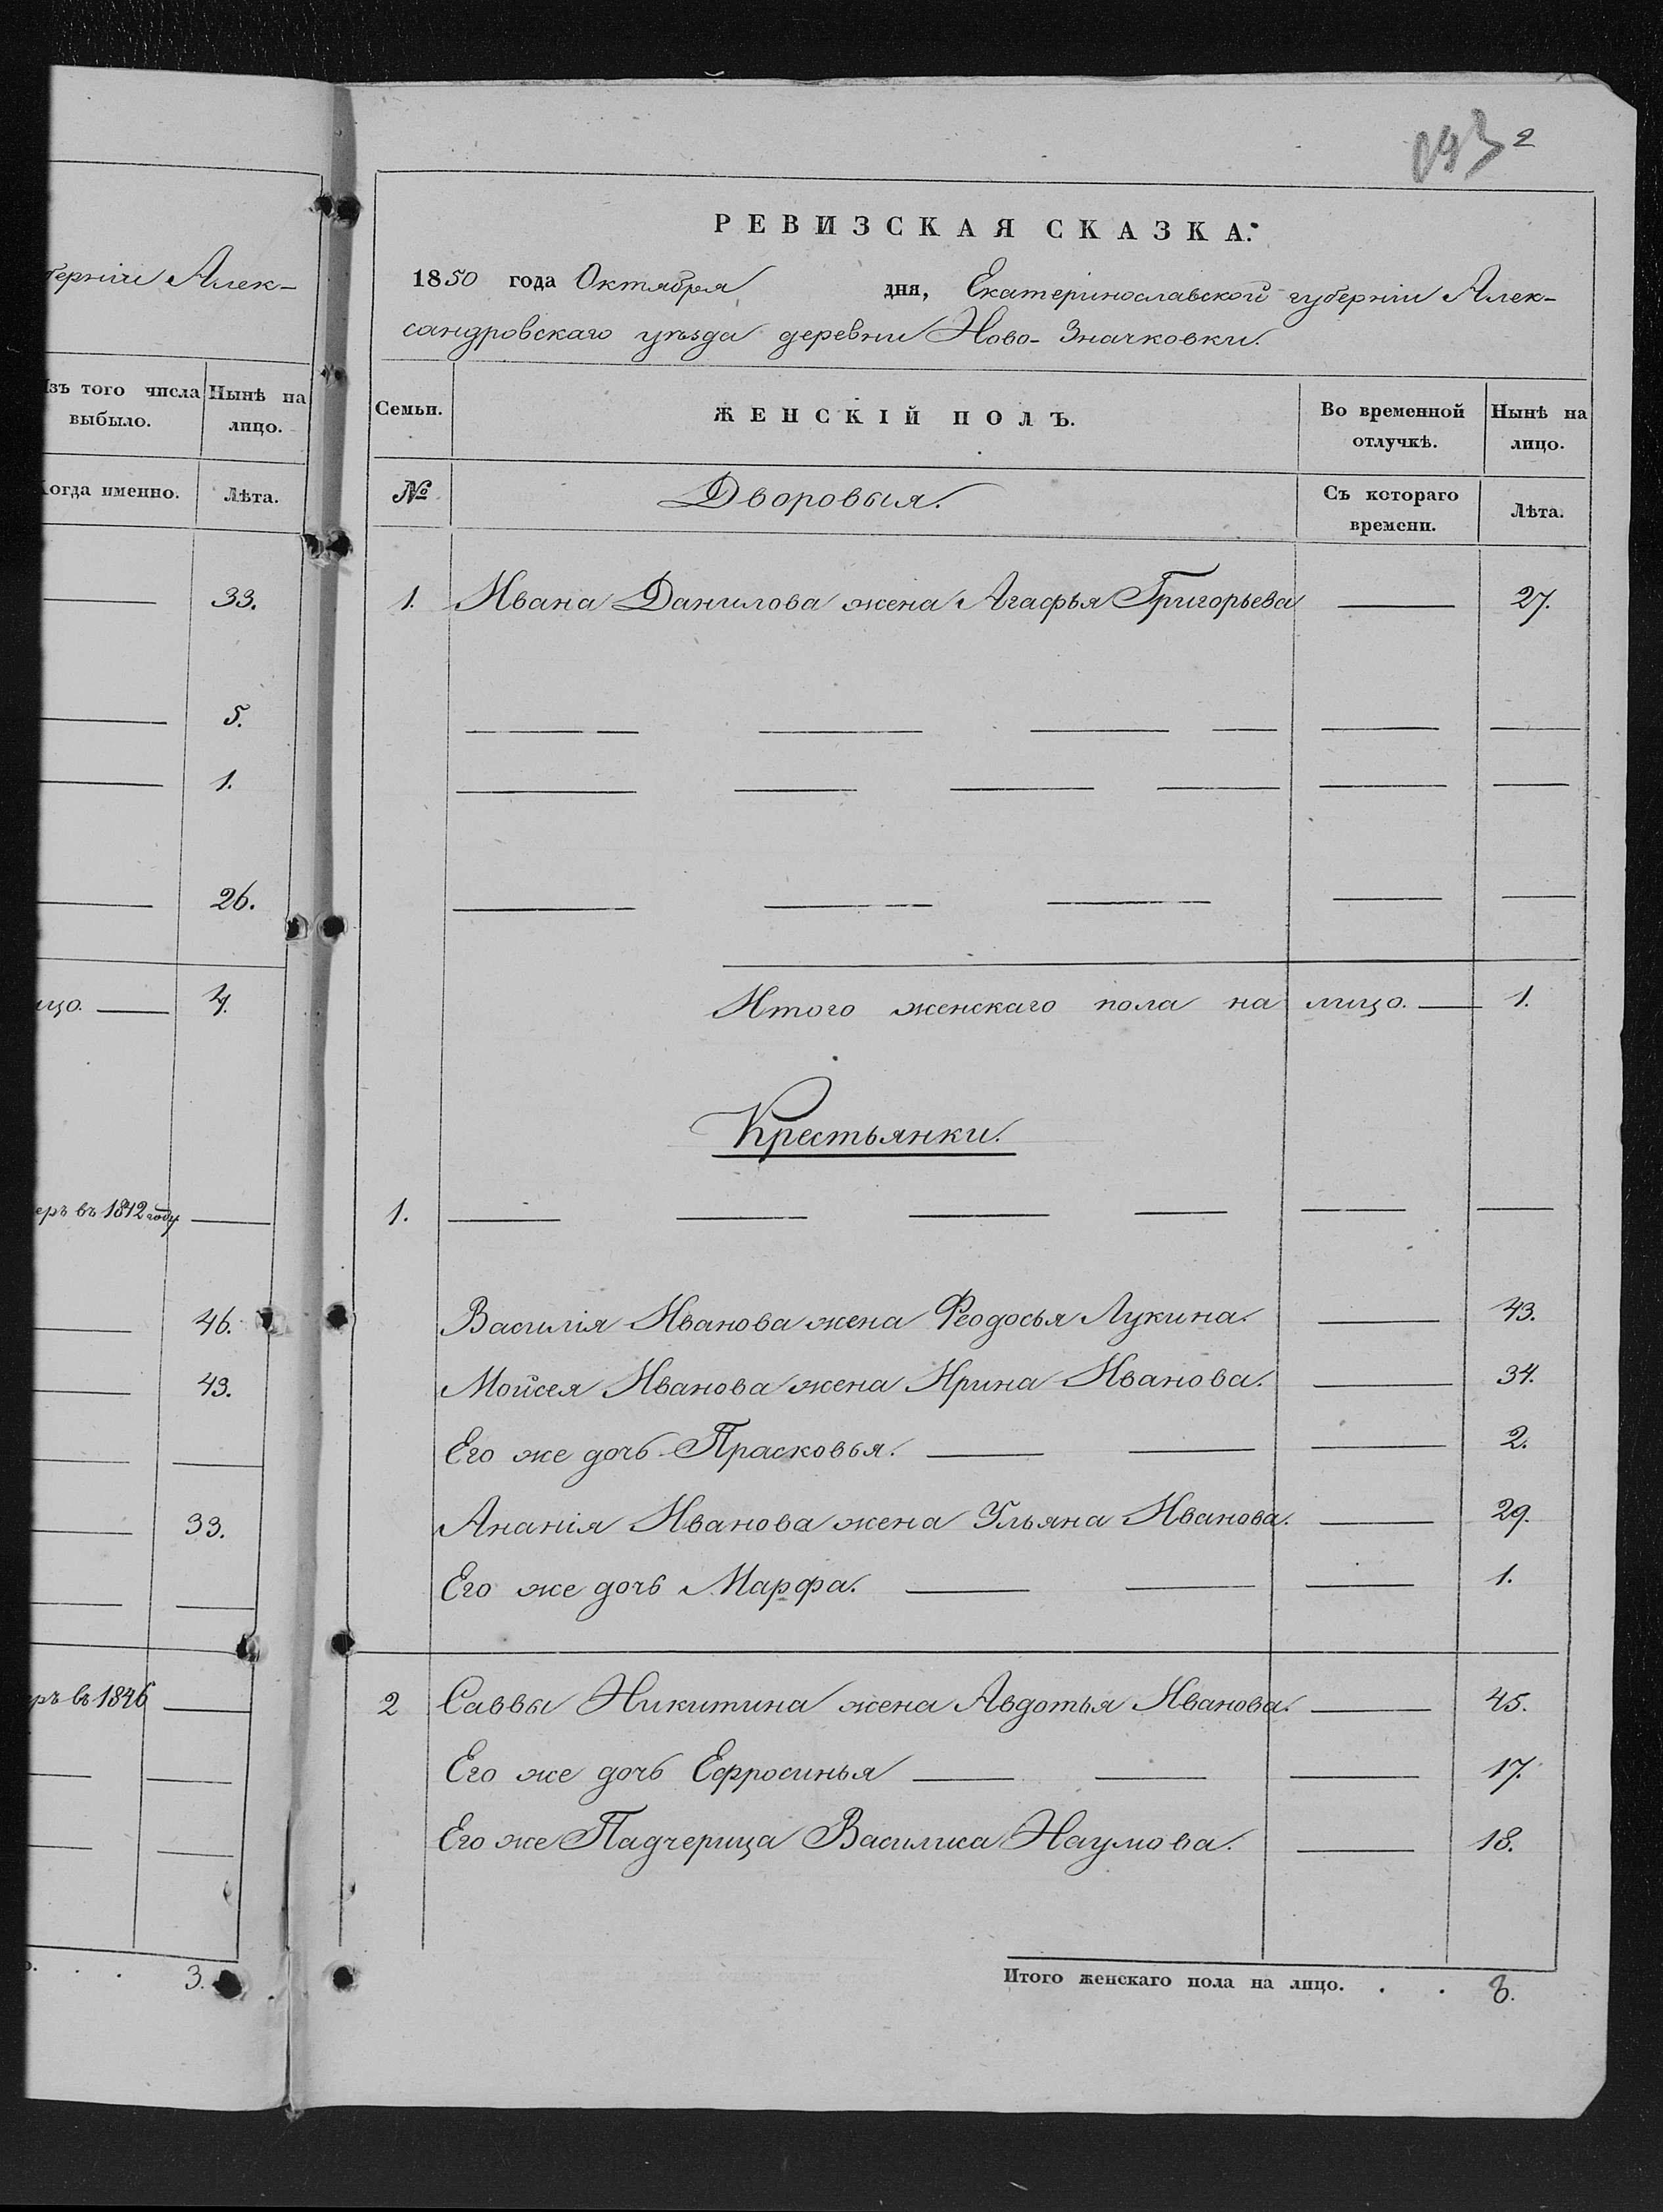 берніи Алек-
Изъ того числа выбыло.
Нынѣ на лицо.
Когда именно.
Лѣта.
33.
5.
1.
26.
ицо. 4.
еръ въ 1842 году
46.
43.
33.
ръ въ 1846
3.
193 2
РЕВИЗСКАЯ СКАЗКА.
1850 года Октября дня, Екатеринославской губерніи Алек-
сандровскаго уѣзда деревни Ново-Значковки.
Семьи.
ЖЕНСКІЙ ПОЛЪ.
Во временной отлучкѣ.
Нынѣ на лицо.
№
Дворовыя.
Съ котораго времени.
Лѣта.
1. Ивана Данилова жена Агафья Григорьева 27.
Итого женскаго пола на лицо. 1.
Крестьянки.
1.
Василія Иванова жена Феодосья Лукина. 43.
Мойсея Иванова жена Ирина Иванова. 34.
Его же дочь Прасковья. 2.
Ананія Иванова жена Ульяна Иванова. 29.
Его же дочь Марфа. 1.
2 Саввы Никитина жена Авдотья Иванова. 45.
Его же дочь Ефросинья 17.
Его же Падчерица Василиса Наумова. 18.
Итого женскаго пола на лицо. . . 8.